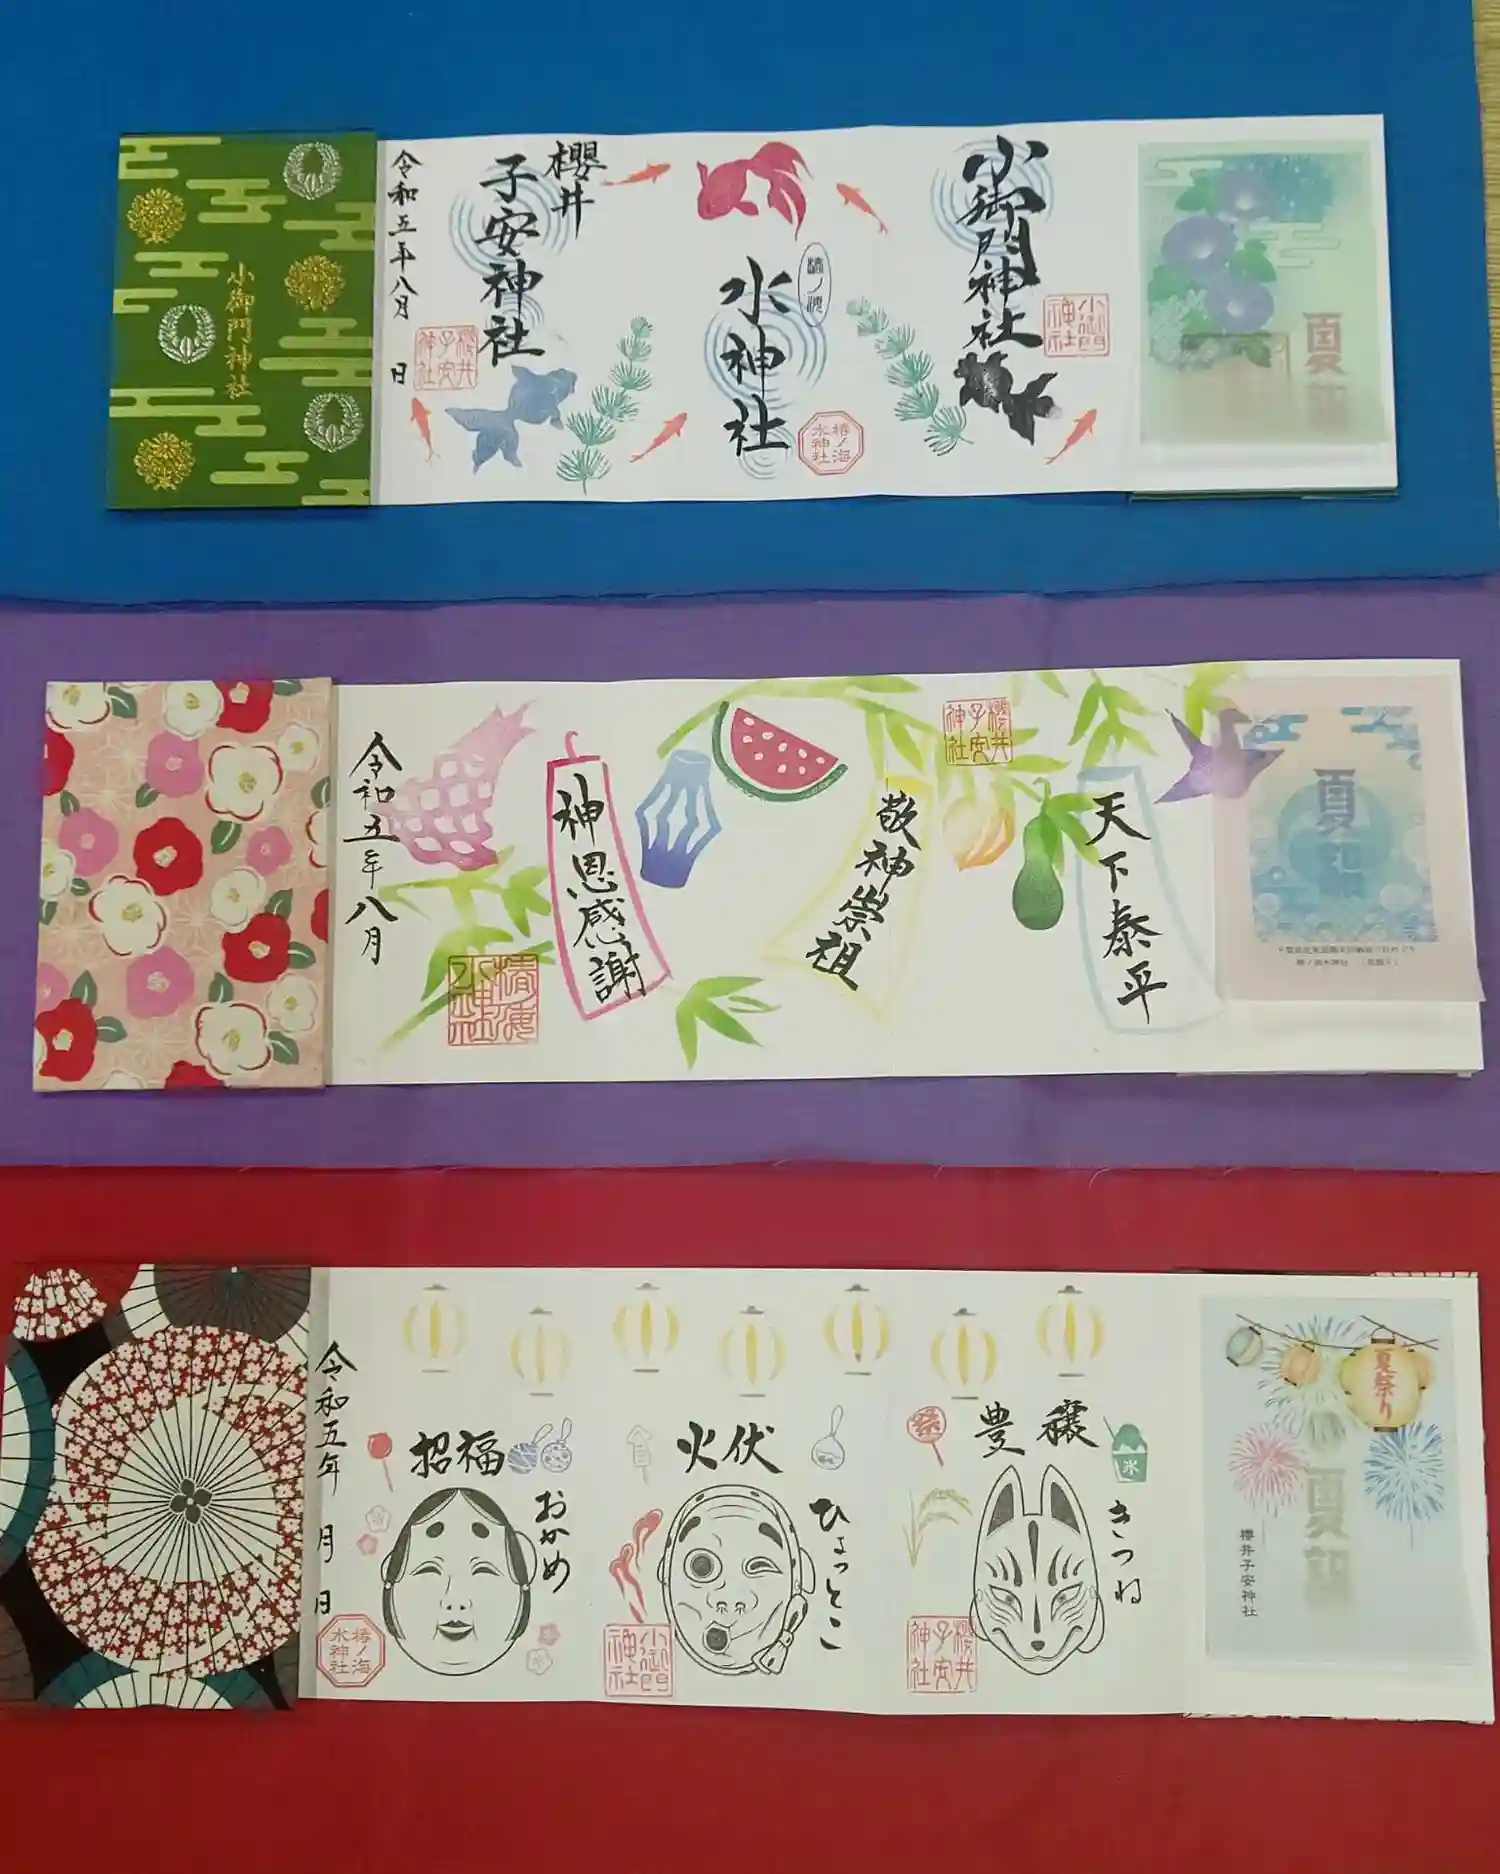 小御門神社
小御門神社
小御門神社
椿ノ海
水神社
椿ノ海
水神社
櫻井
子安神社
櫻井
子安
神社
令和五年八月 日
夏詣
天下泰平
敬神崇祖
神恩感謝
櫻井
子安
神社
令和五年八月
夏詣
豊穣
きつね
氷
祭
櫻井
子安
神社
火伏
ひょっとこ
小御門
神社
招福
おかめ
椿ノ海
水神社
令和五年 月 日
夏祭り
夏詣
櫻井子安神社